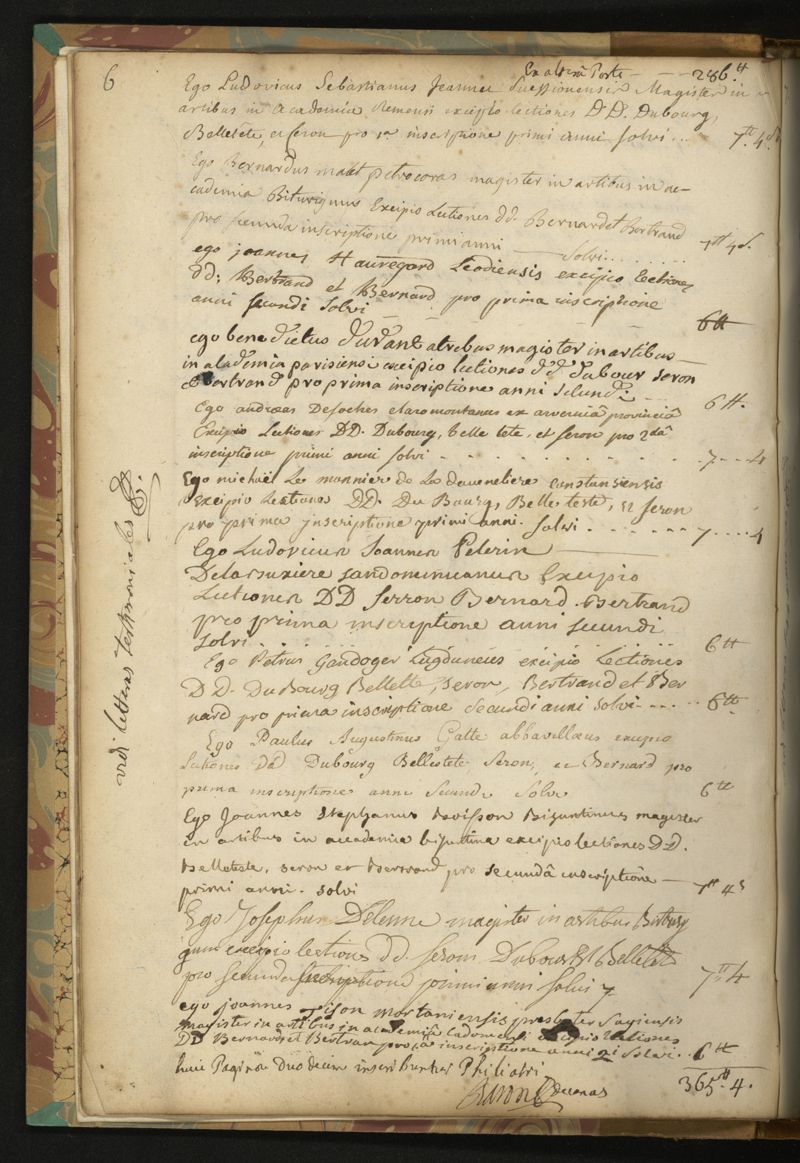 6
Ex alterâ Parte - - - 286 ₶
Ego Ludovicus Sebastianus Jeannet Suessionensis Magister in
artibus in academia Remensi excipio lectiones DD. Dubourg,
Belletete, et Seron pro 1a inscriptione primi anni solvi ... 7 ₶ 4 s
Ego Bernardus malet petrocoras magister in artibus in ac-
cademia Biturigum Excipio Lectiones dd. Bernard et Bertrand
pro secunda inscriptione primi anni — Solvi ........ 7 ₶ 4 s.
ego joannes Hauregard Leodiensis excipio lectiones
dd; Bertrand et Bernard pro prima inscriptione
anni secundi solvi - - - 6 ₶
ego benedictus durant atrebas magister in artibus
in academia parisiensi excipio lectiones dd dubour seron
et bertrand pro prima inscriptione anni secundi - - - 6 ₶.
Ego andreas Desoches claromontanus ex arverniâ provinciâ
Excipio Lectiones DD. Dubourg, belle tete, et seron pro 2dâ
inscriptione primi anni solvi - - - - - - - - - 7 - - - 4
Ego michaël Le monnier de La constansiensis
excipio Lectiones DD. Du Bourg, Belle teste, et seron
pro prima inscriptione primi anni. solvi - - - - - - - 7 .... 4
Ego Ludovicus Joannes Pelerin —
Delassuxiere sandominicanus Excipio
Lectiones DD serron Bernard. Bertrand
pro prima inscriptione anni secundi
solvi . . . . . . . . . 6 ₶
Ego Petrus Gandoger Lugduneus excipio Lectiones
DD. DuBourg Bellette, seron, Bertrand et Ber
nard pro prima inscriptione secundi anni solvi - - - - - 6 ₶
Ego Paulus Augustinus Galte abbavillæus excipio
Lectiones dd Dubourg Bellestete, Seron, et Bernard pro
prima inscriptione anni Secundi Solvi 6 ₶
Ego Joannes Stephanus bisuntinus magister
in artibus in accademia bisuntina excipio lectiones DD.
belleteste, seron et bertrand pro secundâ inscriptione —
primi anni. solvi 7 ₶ 4 s
Ego Josephus Delenne magister in artibus Biturig
gum excipio lectiones dd. seron Dubourg Belletete
pro secunda inscriptione primi anni solvi 7 7 ₶ 4
ego joannes Tison mortaniensis presbiter sagiensis
magister in artibus in academiâ Cadomensi excipio lectiones
DD Bernard et Bertrand pro 1â inscriptione anni 2i solvi . . 6 ₶
huic Paginæ Duodecim inscribuntur Philiatri
decanus 365 ₶. 4.
vidi litteras testimoniales